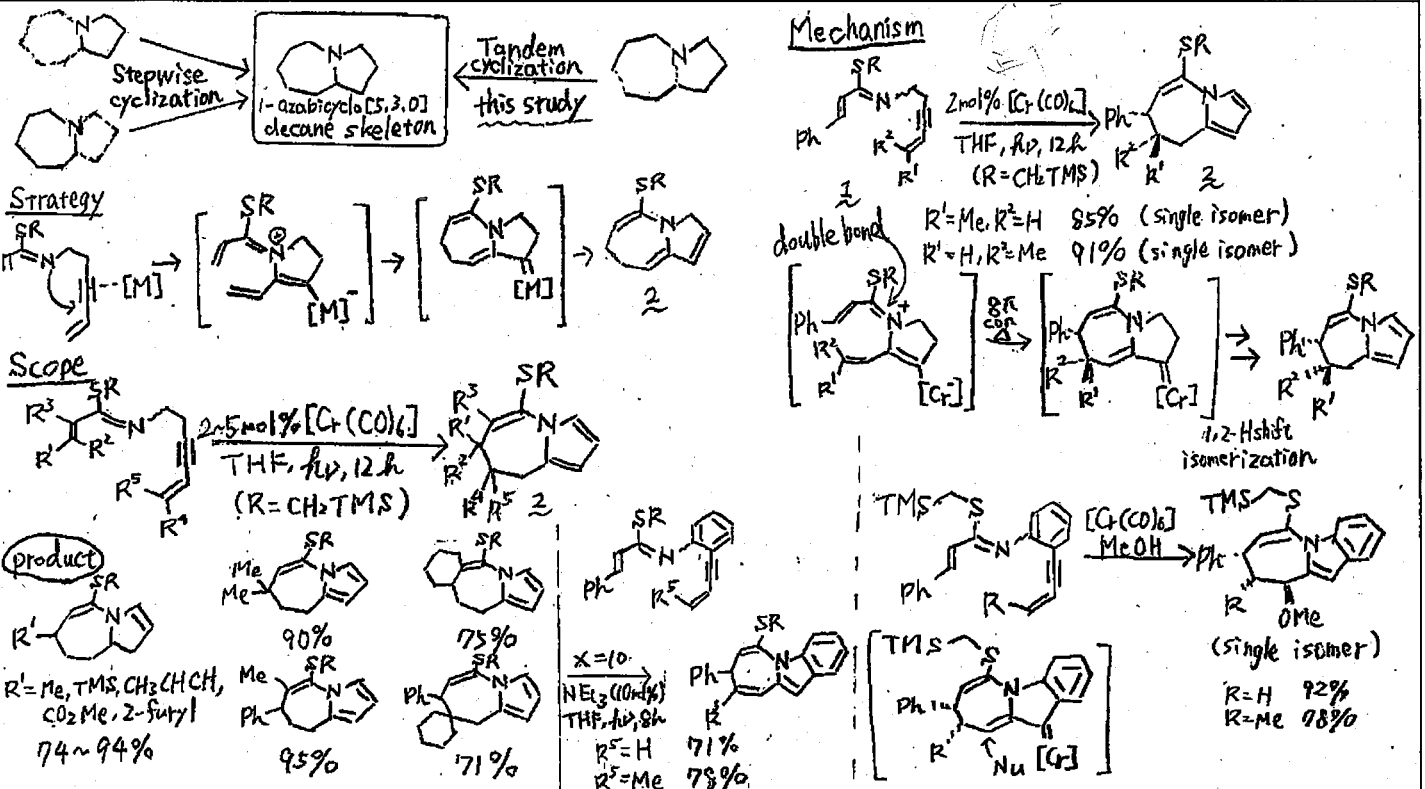 Stepwise
cyclization
N
1-azabicyclo[5,3,0]
decane skeleton
Tandem
cyclization
this study
Strategy
SR
N
[M]
SR
⊕
N
[M]⁻
SR
N
[M]
SR
N
2
Scope
SR
R³
N
R¹
R²
R⁵
R⁴
2~5mol% [Cr(CO)₆]
THF, hν, 12h
(R=CH₂TMS)
SR
R³
R¹
R²
N
R⁴
R⁵
2
product
SR
N
R¹
R¹=Me, TMS, CH₃CHCH,
CO₂Me, 2-furyl
74~94%
SR
Me
Me
N
90%
SR
N
75%
Me
SR
N
Ph
95%
SR
Ph
N
71%
SR
N
Ph
R⁵
x=10
NEt₃ (10mol%)
THF, hν, 8h
SR
Ph
N
R⁵=H 71%
R⁵=Me 78%
Mechanism
SR
N
Ph
R²
R¹
1
2mol% [Cr(CO)₆]
THF, hν, 12h
(R=CH₂TMS)
SR
Ph
N
R²
R¹
2
R¹=Me, R²=H 85% (single isomer)
R¹=H, R²=Me 91% (single isomer)
double bond
SR
Ph
N⁺
R²
R¹
[Cr⁻]
8π
con
Δ
SR
Ph
N
R²
R¹
[Cr]
1,2-H shift
isomerization
SR
Ph
N
R²
R¹
TMS
S
N
Ph
R
[Cr(CO)₆]
MeOH
TMS
S
Ph
N
R
OMe
(single isomer)
R=H 92%
R=Me 78%
TMS
S
Ph
N
R
Nu
[Cr]